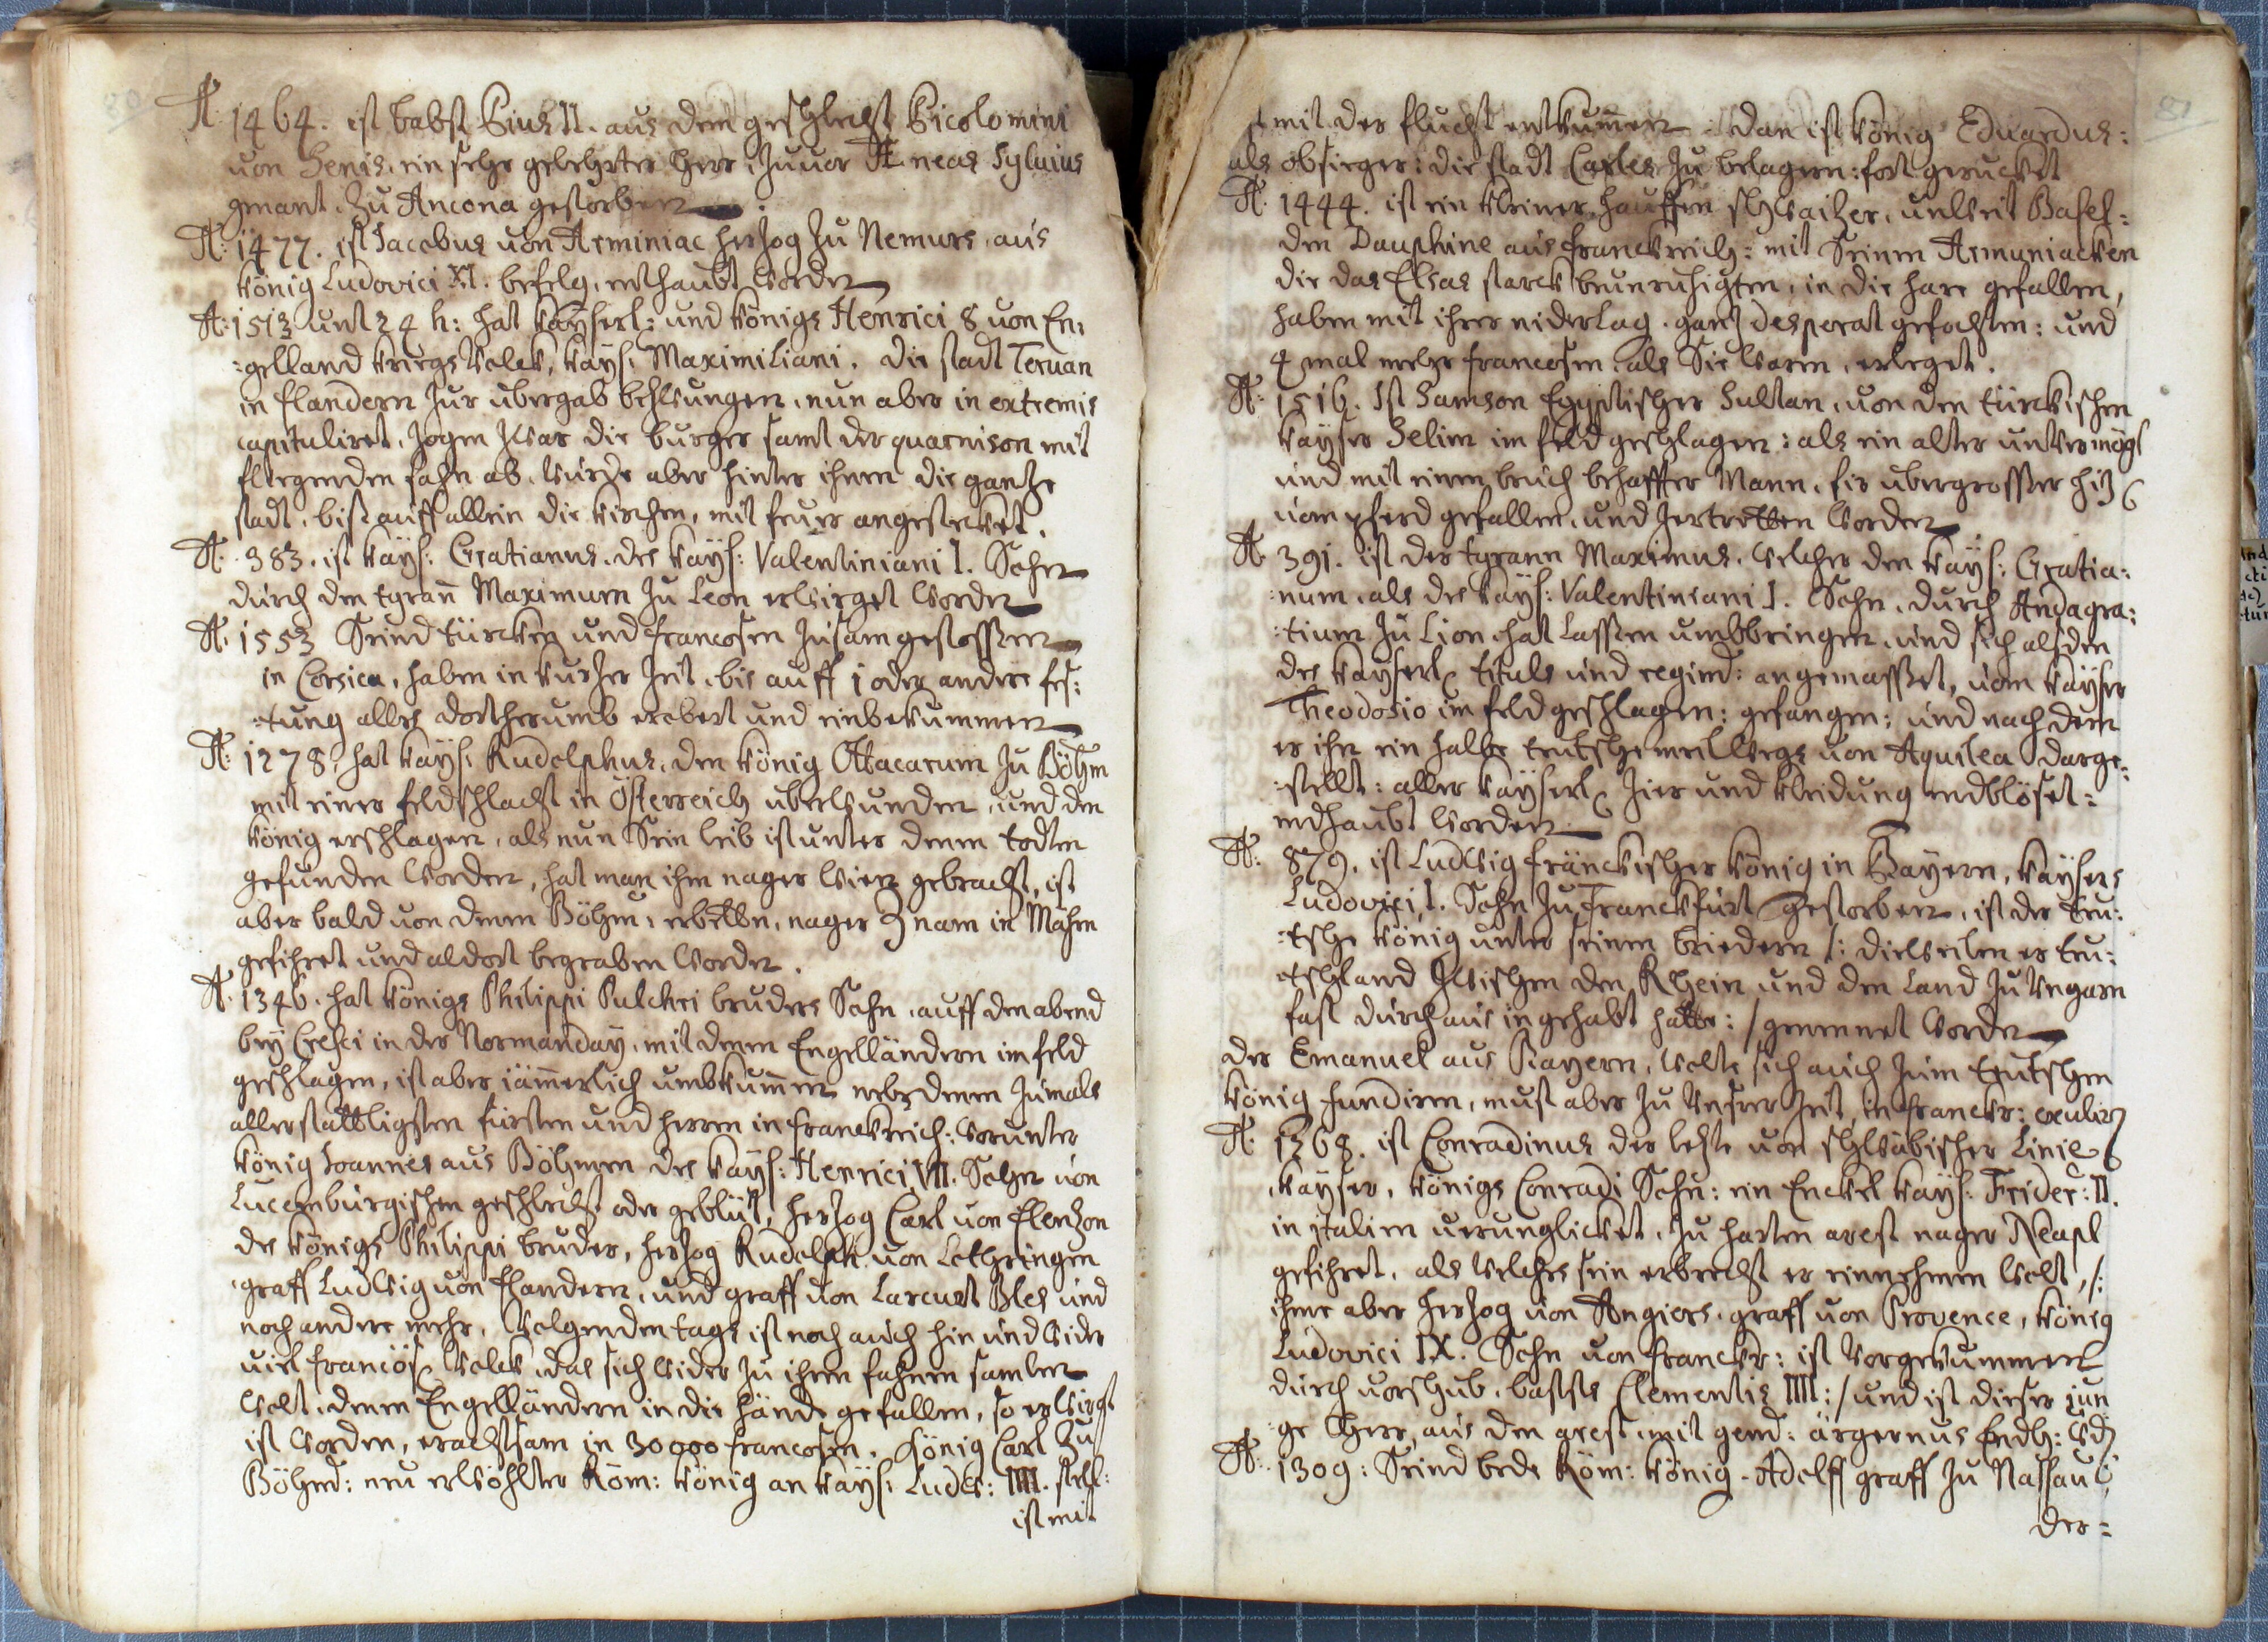 80
A: 1464. ist babst Pius II. aus dem geschlecht Picolomini
von Senis, ein sehr gelehrter herr, zuvor Æneas Sylvius
genant. zu Ancona gestorben
A: 1477. ist Jacobus von Arminiac herzog zu Nemurs, aus
könig Ludovici XI. befelg, enthaubt worden
A: 1513 unt 24 h: hat kayserl: und königs Henrici 8 von En:
:gelland kriegs volck, kays: Maximiliani. die stadt Teruan
in flandern zur ubergab bezwungen, nun aber in extremis
capituliret, zogen zwar die burger samt der quarnison mit
fliegenden fahn ab, wurde aber hinter ihnen die gantze
stadt, bis auff allein die kirchen, mit feuer angestecket.
A: 383. ist kays: Gratianus, des kays: Valentiniani I. Sohn
durch den tyrañ Maximum zu Leon erwirget worden
A: 1553 Seind türcken und francosen zusam gestossen
in Corsica, haben in kurzer zeit, bis auff 1 oder andere fes:
:tung alles dortherumb erobert und einbekummen
A: 1278, hat kays: Rudolphus, den könig Ottacarum zu Böhm
mit einer feldschlacht in Österreich uberwunden, und den
könig erschlagen, als nun Sein leib ist unter denen todten
gefunden worden, hat man ihn nager Wien gebracht, ist
aber bald von denen Böhm: erbetten, nager Znam in Mähren
gefihret und aldort begraben worden.
A: 1346. hat königs Philippi Pulchri bruders Sohn, auff den abend
bey Cresci in der Normanday, mit denen Engelländern im feld
geschlagen, ist aber jämerlich umbkumen nebst denen zumals
allerstattligsten fürsten und herren in franckreich: worunter
könig Joannes aus Böhmen des kays: Henrici VII. Sohn von
Lucemburgischen geschlecht oder geblüt, herzog Carl von Elenzon
des königs Philippi bruder, herzog Rudolph von Lothringen
graff Ludwig von flandern, und graff von Larcurt Bles und
noch andere mehr. Volgenden tags ist noch auch hin und wider
viel francös: volck, das sich wider zu ihren fahnen samlen
wolt, denen Engelländern in die hände gefallen, so erwirgt
ist worden, erachtsam in 30000 francosen. König Carl zu
Böhmd: neu erwöhlter Röm: könig an kays: Ludw: IIII. stell:
ist mit
81
mit der flucht entkumen: dan ist könig Eduardus:
als obsieger: die stadt Carles zu belagern: fort gerucket
A: 1444. ist ein kleiner hauffen schwaitzer, unweit Basel:
den Dauphine aus franckreich: mit Seinen Armuniacken
die das Elsas starck beunruhigten, in die hare gefallen,
haben mit ihrer niderlag, gantz desperat gefochten: und
4 mal mehr francosen, als Sie waren, erleget.
A: 1516. Ist Samson Egyptischer Sultan, von den türckischen
kayser Selim im feld geschlagen: als ein alter unvermögl
und mit einem bruch behaffter Mann, fir ubergrosser hitz
vom pferd gefallen, und zertretten worden
A: 391. ist der tyrann Maximus, welcher den kays: Gratia:
:num, als des kays: Valentiniani I. Sohn, durch Andagra:
:tium zu Lion hat lassen umbbringen, und sich als den
des kayserl: tituls und regimd: angemasset, vom kayser
Theodosio im feld geschlagen: gefangen: und nach dem
er ihn ein halbe teutsche meil wegs von Aquilea darge:
:stellt: aller kayserl: zier und kleidung endblöset:
endhaubt worden
A: 879. ist Ludwig fränckischer könig in Bayern, kaysers
Ludovici I. Sohn zu Franckfurt gestorben, ist der teu:
:tsche könig unter seinen briedern /: dieweilen er teu:
:tschland zwischen den Rhein und den Land zu Ungarn
fast durchaus ingehabt hatte: / genennet worden
der Emanuel aus Bayern, wolte sich auch zum teutschen
könig fundiren, must aber zu unser zeit, in franckr: exulirn
A: 1268. ist Conradinus der letzte von schwäbischer Linie
kayser, königs Conradi Sohn: ein Enckel kays: Frider: II.
in italien verunglicket, zu harten arest nager Neapl
gefihret, als welches sein erbrecht er einnehmen wolt, /:
ihme aber herzog von Angiers, graff von Provence, könig
Ludovici IX. Sohn von franckr: ist vorgekummen
durch vorschub, babsts Clementis IIII: / und ist dieser jun
ge herr, aus den arest, mit gemd: ärgernus Endh: wd
A: 1309: Seind bede Röm: könig Adolff graff zu Nassau
der=